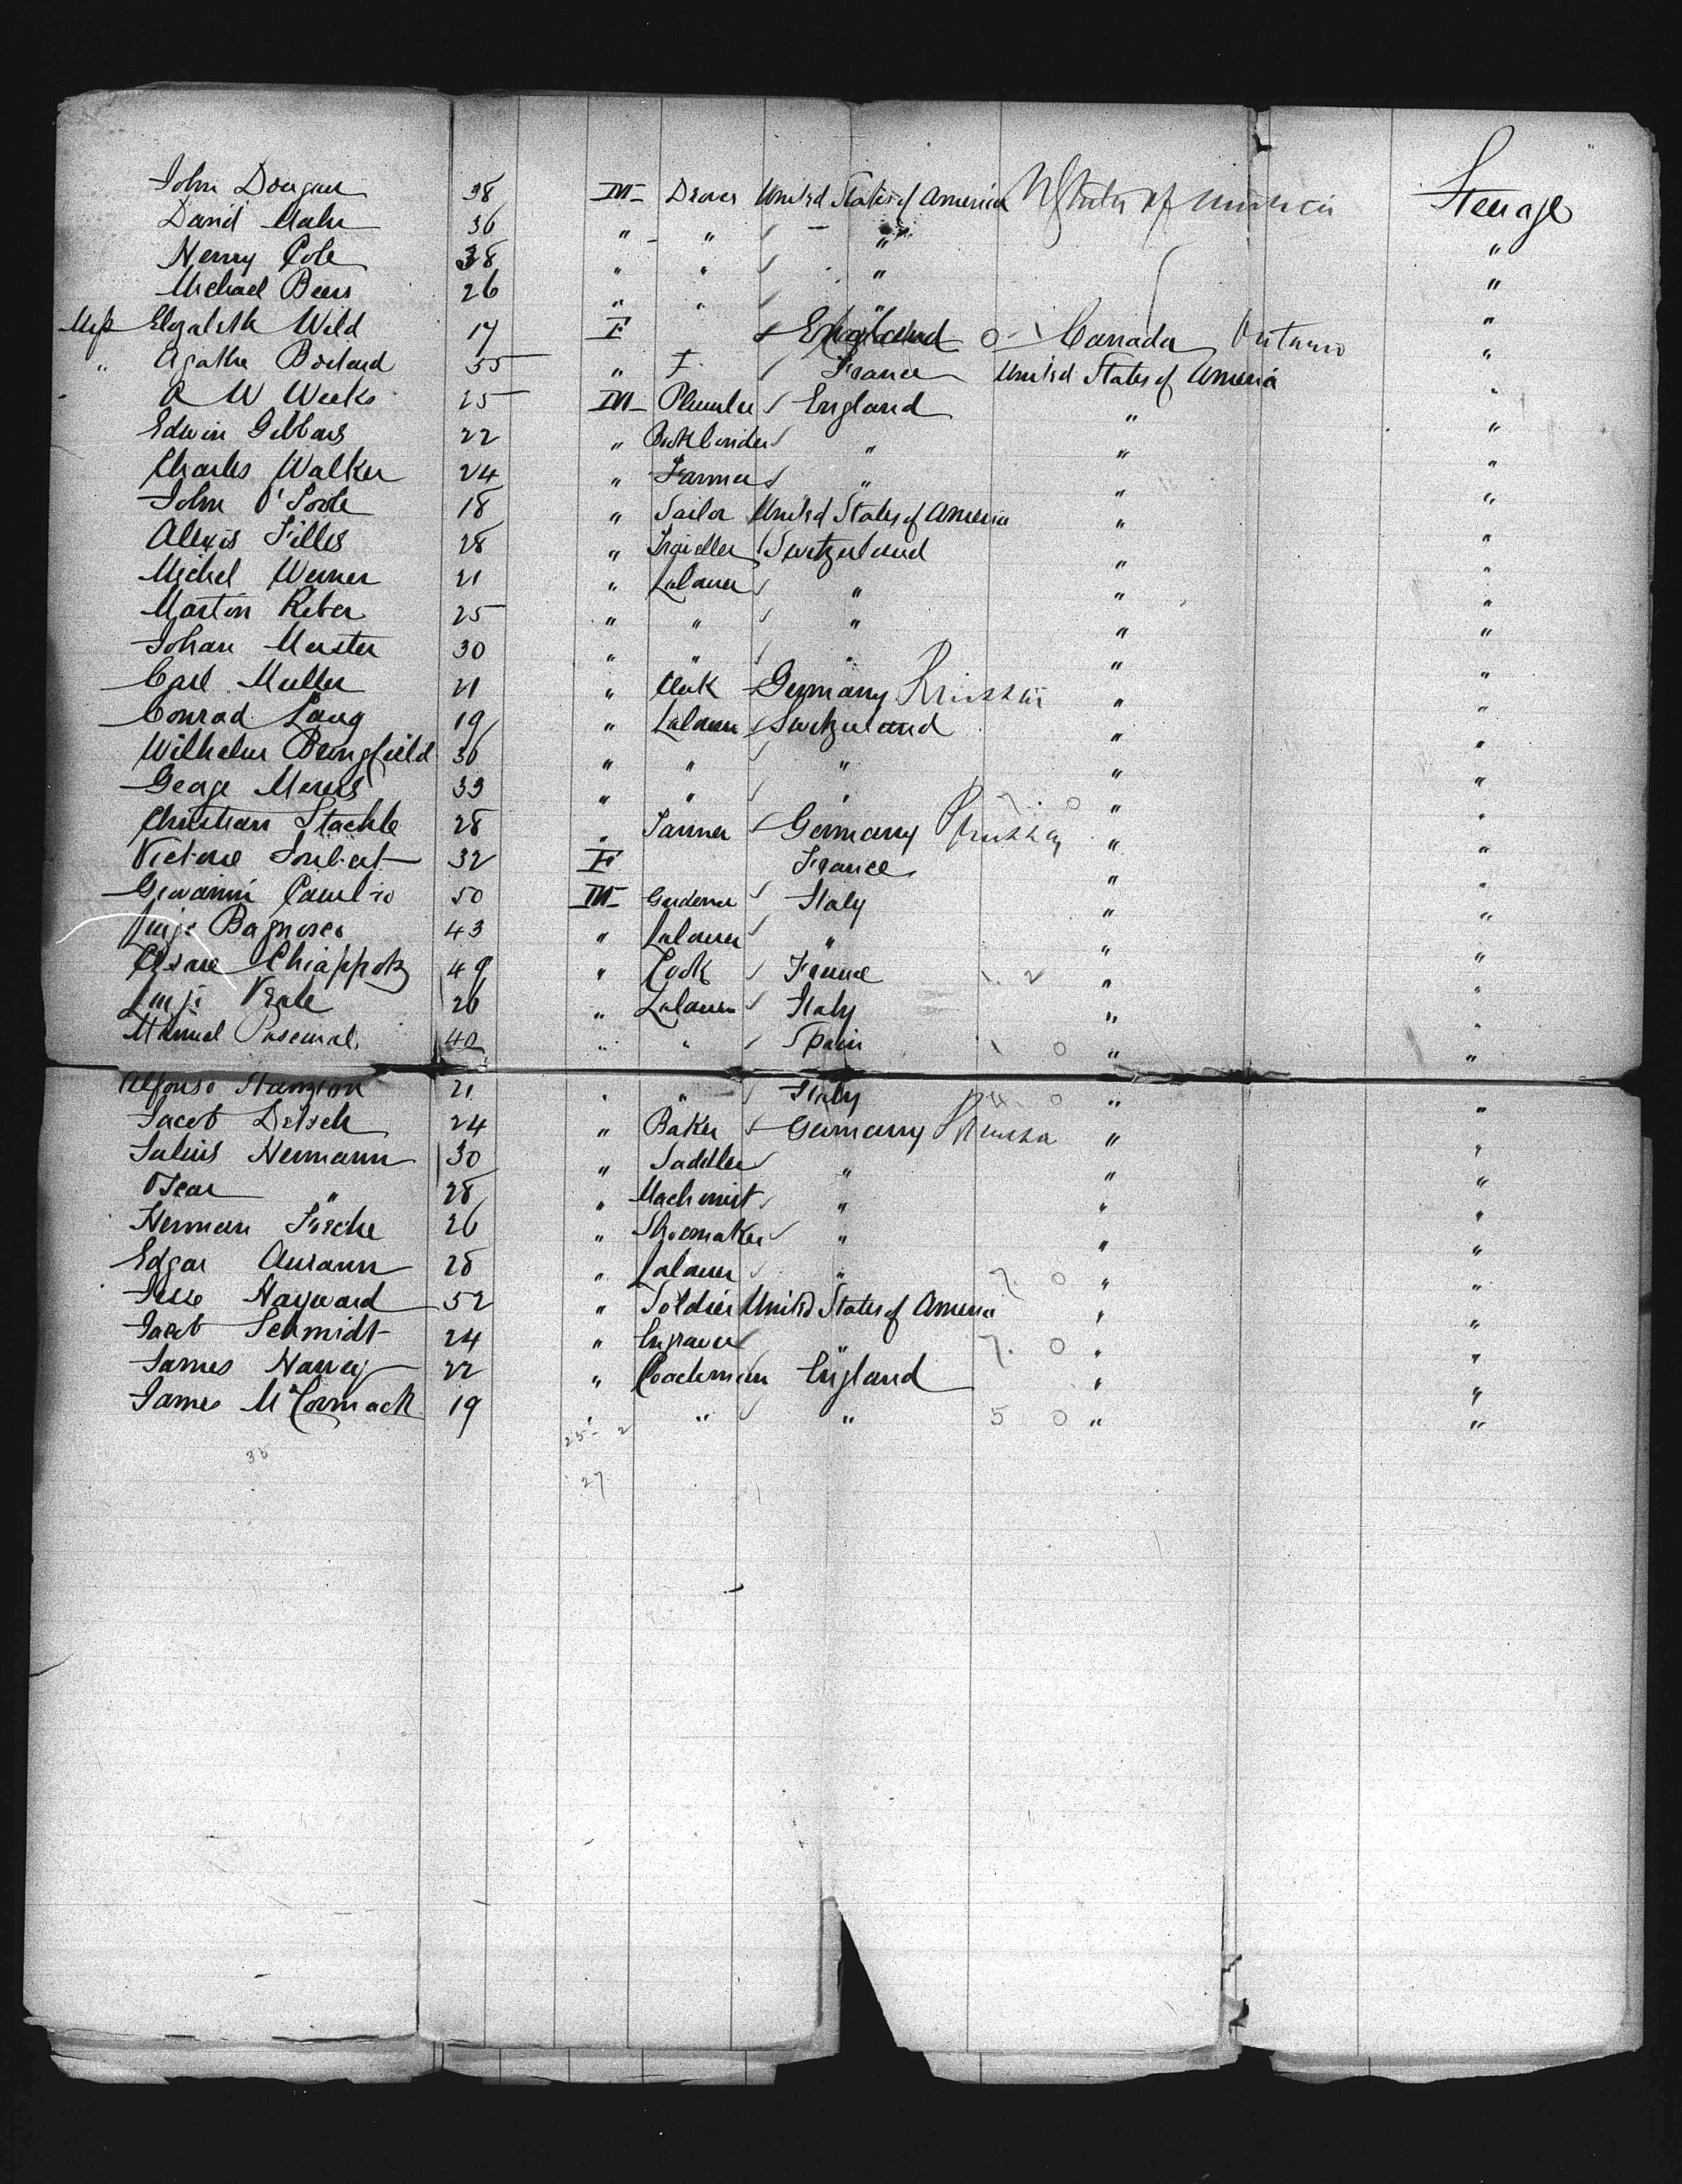 John Dougan 38 M Drover United States of America U States of America Steerage
David Maher 36 " " " "
Henry Cole 38 " " " "
Michael Beers 26 " " " "
Miss Elizabeth Wild 17 F England Canada Ontario "
" Agathe 35 " F France United States of America "
A W Weeks 25 M Plumber England " "
Edwin Gibbons 22 " Bookbinder " " "
Charles Walker 24 " Farmer " " "
John O'Toole 18 " Sailor United States of America " "
Alexis Filles 28 " Traveller Switzerland " "
Michel Werner 21 " Labourer " " "
Martin Reber 25 " " " " "
Johan Meister 30 " " " " "
Carl Muller 21 " Clerk Germany Prussia " "
Conrad Lang 19 " Labourer Switzerland " "
Wilhelm 36 " " " " "
George 33 " " " " "
Christian Stackle 28 " Farmer Germany Prussia " "
Victoire 32 F France " "
Giovanni 50 M Gardener Italy " "
Luigi 43 " Labourer " " "
Cesare 49 " Cook France " "
Luigi 26 " Labourer Italy " "
Manuel Pascual 40 " " Spain " "
Alfonso 21 " " Italy " "
Jacob 24 " Baker Germany Prussia " "
Julius Hermann 30 " Saddler " " "
Oscar " 28 " Machinist " " "
Herman 26 " Shoemaker " " "
Edgar Aurann 28 " Labourer " 7. 0 " "
Jesse Hayward 52 " Soldier United States of America " "
Jacob Schmidt 24 " Engraver " 7. 0 " "
James Harvey 22 " Coachman England " "
James McCormack 19 " " " 5 0 " "
35 25 2
27